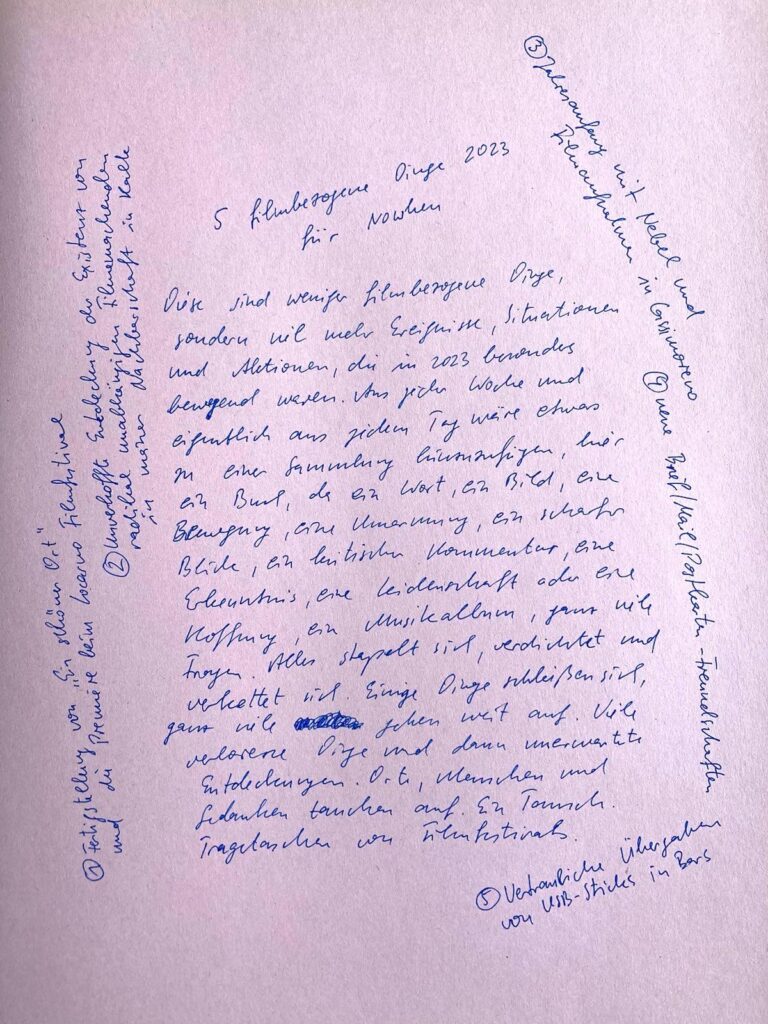 5 filmbezogene Dinge 2023
für Nowhen
Diese sind weniger filmbezogene Dinge,
sondern viel mehr Ereignisse, Situationen
und Aktionen, die in 2023 besonders
bewegend waren. Aus jeder Woche und
eigentlich aus jedem Tag wäre etwas
zu einer Sammlung hinzuzufügen, hier
ein Buch, da ein Wort, ein Bild, eine
Bewegung, eine Umarmung, ein scharfer
Blick, ein kritischer Kommentar, eine
Erkenntnis, eine Leidenschaft oder eine
Hoffnung, ein Musikalbum, ganz viele
Fragen. Alles stapelt sich, verdichtet und
verkettet sich. Einige Dinge schließen sich,
ganz viele gehen weit auf. Viele
verlorene Dinge und dann unerwartete
Entdeckungen. Orte, Menschen und
Gedanken tauchen auf. Ein Tausch.
Tragetaschen von Filmfestivals.
① Fertigstellung von „Ein schöner Ort"
und die Premiere beim Locarno Filmfestival
② Unverhoffte Entdeckung der Existenz von
radikal unabhängigen Filmemachenden
in meiner Nachbarschaft in Kalk
③ Jahresanfang mit Nebel und
Filmaufnahmen in
④ neue Brief/Mail/Postkarten-Freundschaften
⑤ Vertrauliche Übergaben
von USB-Sticks in Bars